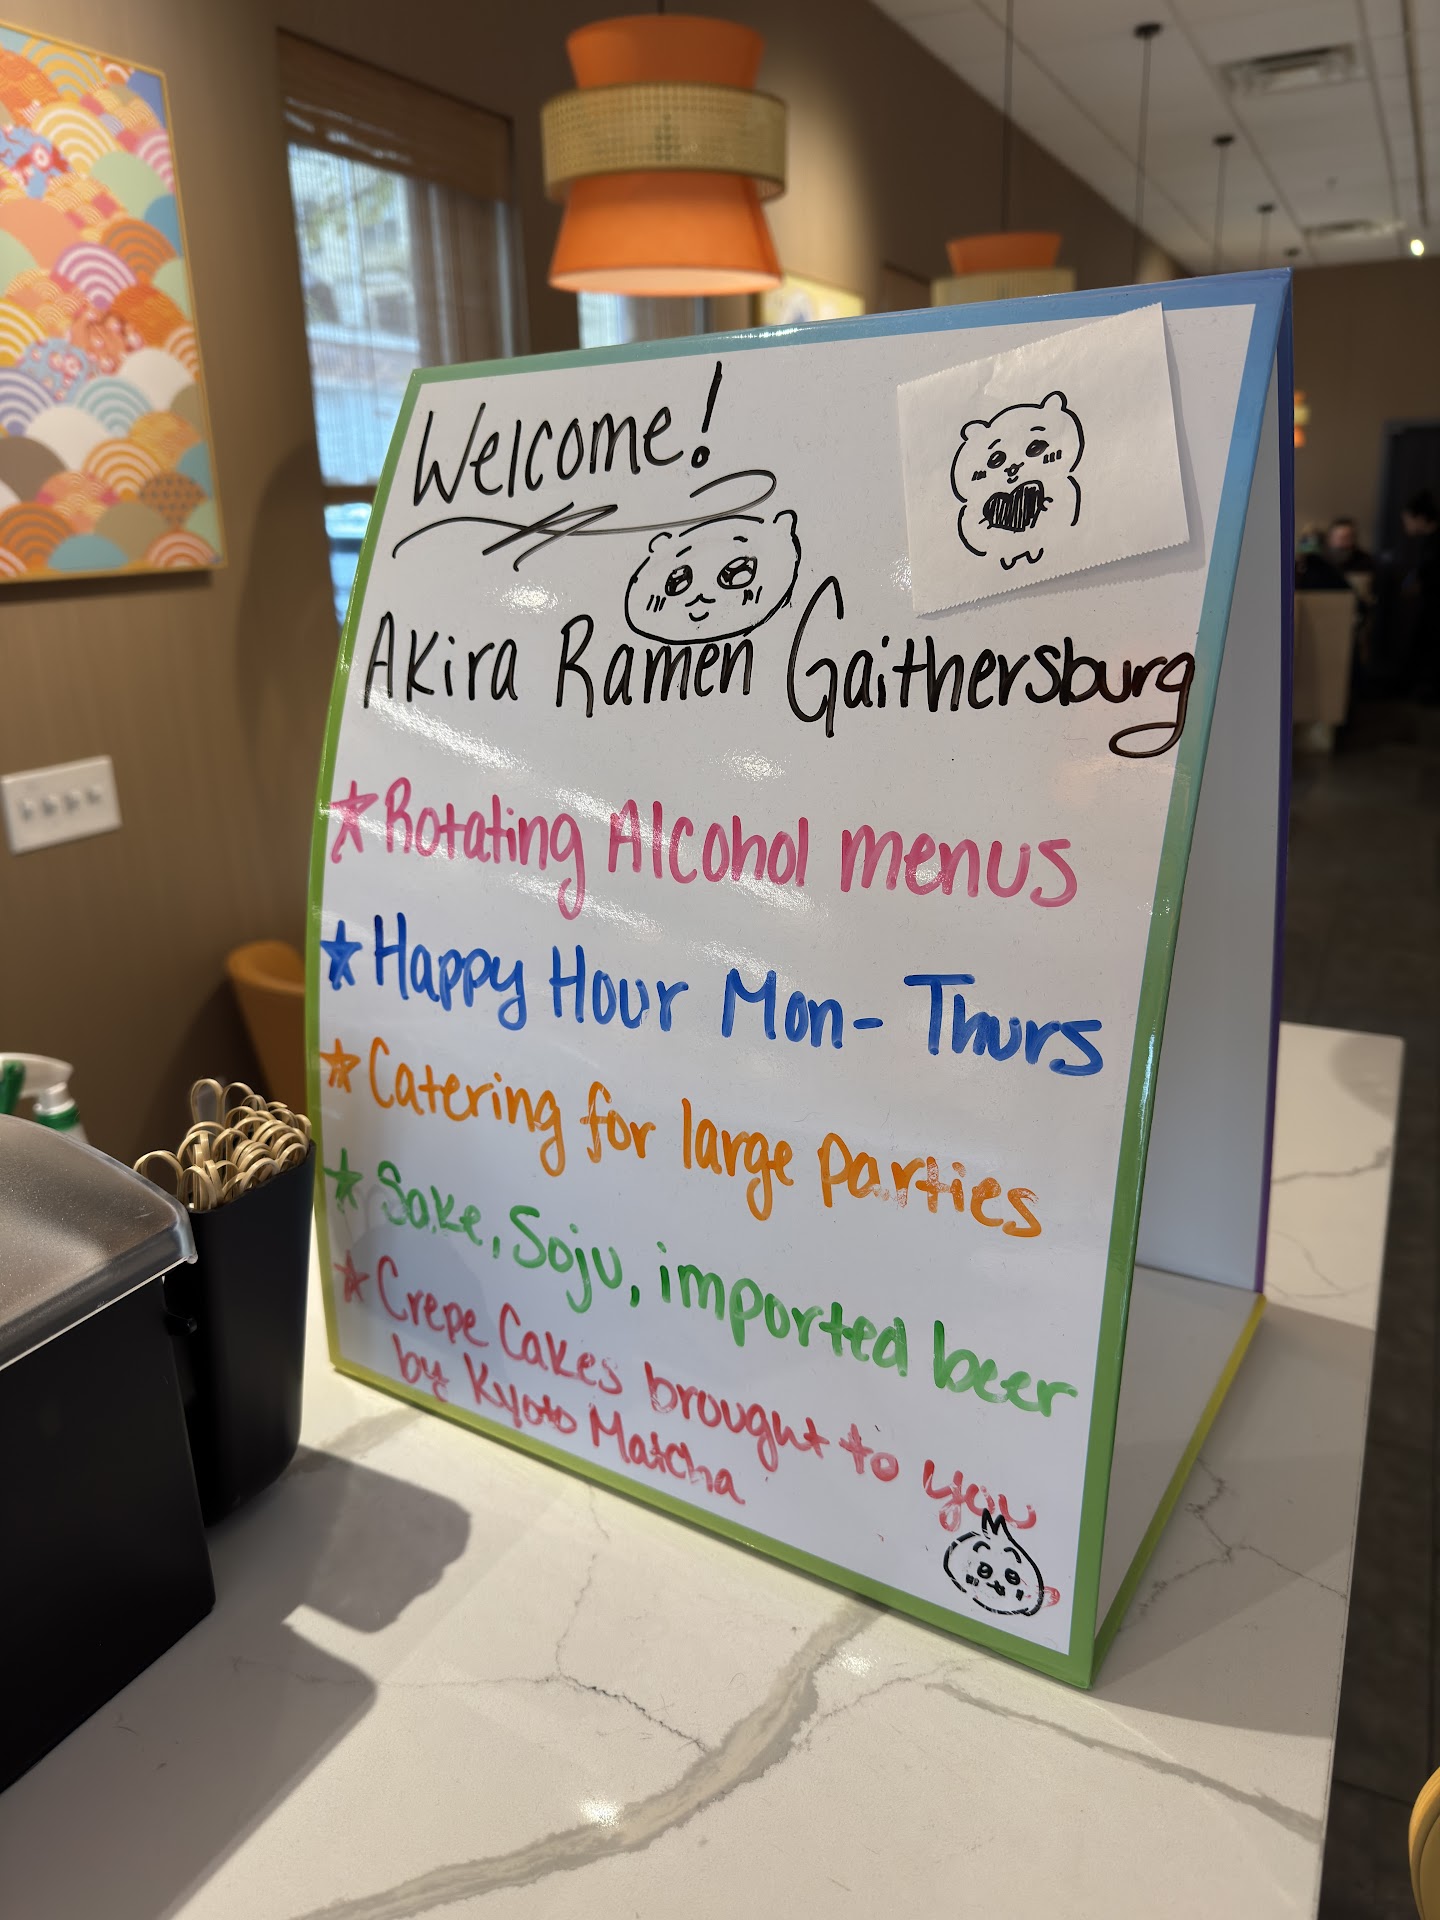 Welcome!
Akira Ramen Gaithersburg
★ Rotating Alcohol menus
★ Happy Hour Mon- Thurs
★ Catering for large parties
★ Sake, Soju, imported beer
★ Crepe Cakes brought to you
by Kyoto Matcha